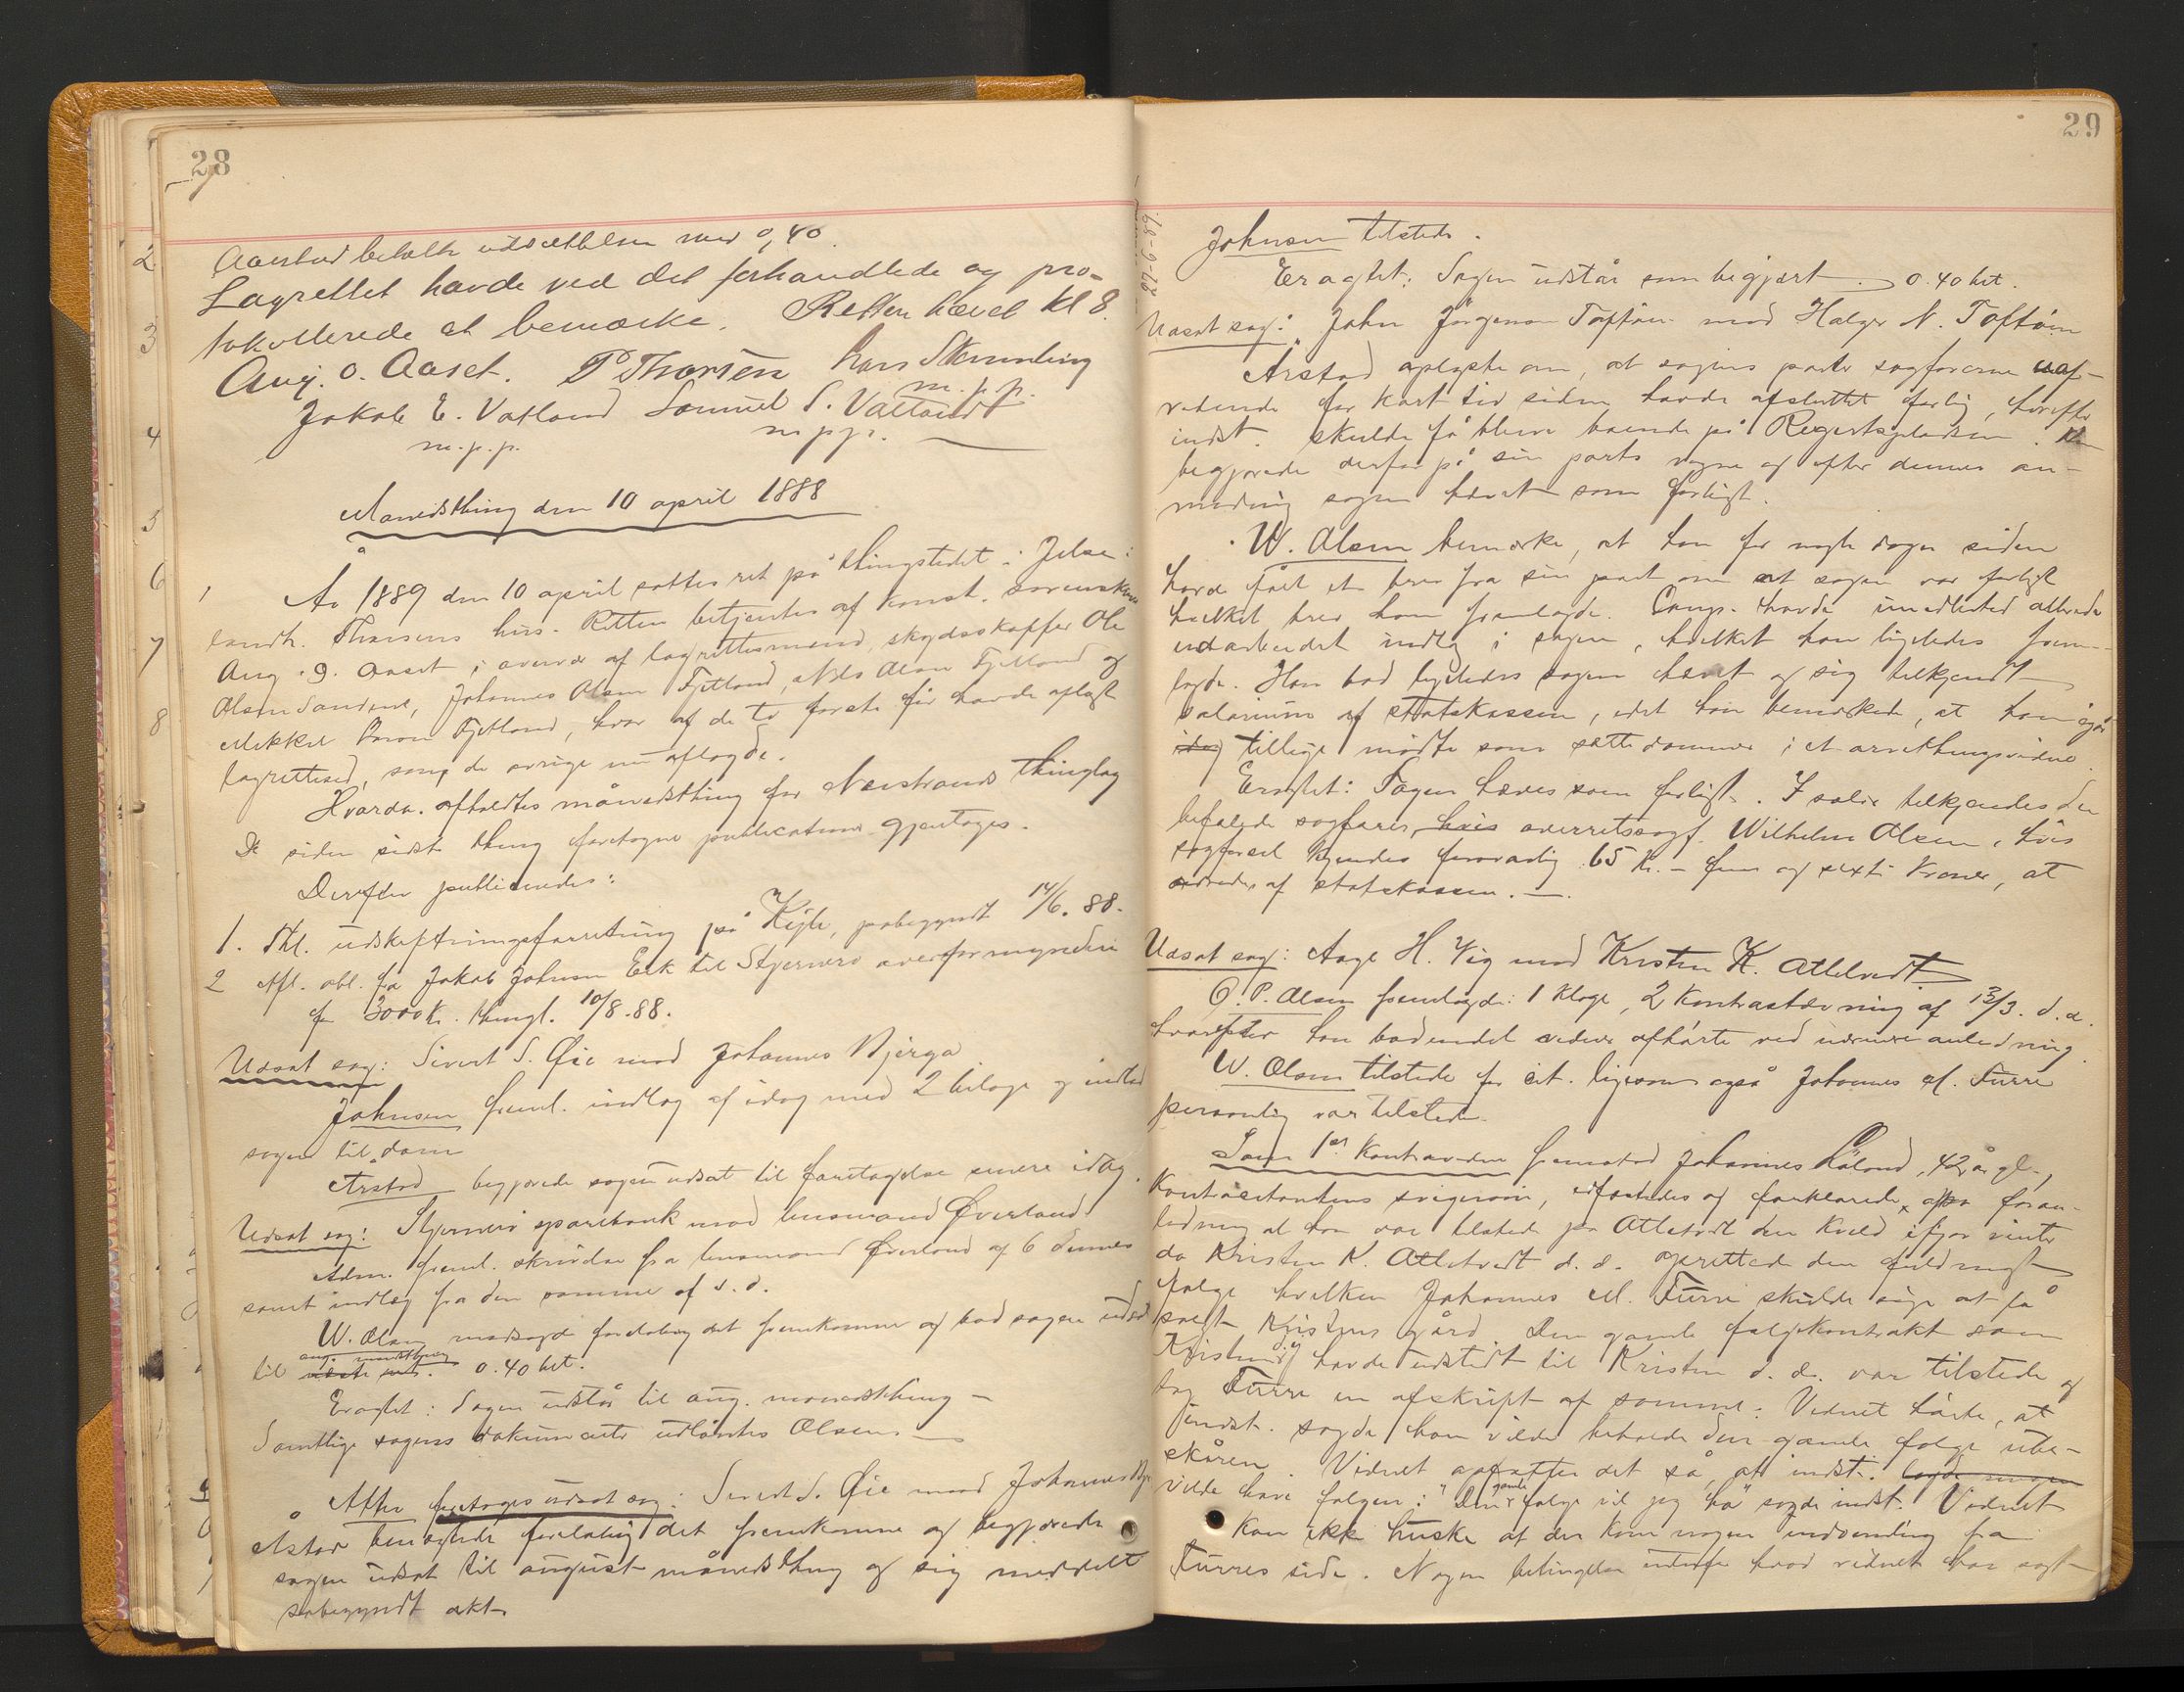 28
Aarstad betalte udsættelsen med 0,40.
Lagrettet havde ved det forhandlede og pro-
tokollerede at bemærke. Retten hævet kl 8.
Aug. O. Aaset. P Thorsen hans Stemmling
m.p.p.
Jakob E. Vatland Samuel S. Vatlandt
m.p.p. m.p.p.
Manedsthing den 10 april 1888
År 1889 den 10 april sattes ret på thingstedet i Jelse i
landh. Thorsens hus. Retten betjentes af konst. sorenskriver
Aug. O. Aaset i overvær af lagrettesmænd, skydsskaffer Ole
Olsen Sandene, Johannes Olsen Fjetland, Nils Olsen Fjetland og
Mikkel Fjetland, hvor af de to første før havde aflagt
lagrettesed, som de øvrige nu aflagde.
Hvorda. afholdtes månedsthing for Nerstrands thinglag
De siden sidst thing foretagne publicationer gjentages.
Derefter publiceredes:
1. Thl. udskiftningsforretning på Kigle, påbegyndt 14/6. 88.
2 Afl. obl. fra Jakob Johnsen Eik til Stjernerø overformynderi
for 3000 kr. thingl. 10/8.88.
Udsat sag: Sivert S. Øie mod Johannes Bjerga
Johnsen freml. indlæg af idag med 2 bilage og indlod
sagen til dom
Årstad begjærede sagen udsat til foretagelse senere idag.
Udsat sag: Stjernerø sparebank mod lensmand Øverland
Adm. freml. skrivelse fra lensmand Øverland af 6 dennes
samt indlæg fra den samme af s. d.
W. Olsen modsagde foreløbig det fremkomne og bad sagen udsat
aug. månedsthing
til næste 0.40 bet.
Eragtet: Sagen udstår til aug. månedsthing –
Samtlige sagens dokumenter udlåntes Olsen. –
Atter foretoges udsat sag: Sivert S. Øie mod Johannes Bjerga
Årstad benægtede foreløbig det fremkomne og begjærede
sagen udsat til august månedsthing og sig meddelt
påbegyndt akt.
29
Johnsen tilstede.
Eragtet: Sagen udstår som begjært. 0.40 bet.
Udsat sag: John Jørgensen Toftøen mod Halgr N. Toftøen
Årstad oplyste om, at sagens parter sagførerne uaf-
vidende for kort tid siden havde afsluttet forlig, hvorefter
indst. skulde få blive boende på Regertspladsen. Han
begjærede derfor på sin parts vegne og efter dennes an-
modning sagen hævet som forligt.
W. Olsen bemærke, at han for nogle dage siden
havde fået et brev fra sin part om at sagen var forligt
hvilket brev han fremlagde. Comp. havde imidlertid allerede
udarbeidet indlæg i sagen, hvilket han ligeledes frem-
lagde. Han bad ligeledes sagen hævet og sig tilkjendt
salarium af statskassen, idet han bemærkede, at han igår
idag tillige mødte som sættedommer i et arvethingsvidne.
Eragtet: Sagen hæves som forligt. I salær tilkjendes den
befalede sagfører, hvis overretssagf. Wilhelm Olsen, hvis
sagførsel kjendes forsvarlig 65 kr. – fem og sexti kroner, at
udredes af statskassen. –
Udsat sag: Aage H. Vig mod Kristen K. Atletvedt
O. P. Olsen fremlagde: 1 klage, 2 kontrastævning af 13/3. d. a.
hvorefter han bad endel vidner afhørte ved nærværende anledning
W. Olsen tilstede for cit. ligesom også Johannes M. Furre
personlig var tilstede.
Som 1ste kontravidne fremstod Johannes Håland, 42 år gl.,
kontracitantens svigersøn, edfæstedes og forklarede, foran-
ledning at han var tilstede på Atletvedt den kveld ifjor vinter
da Kristen K. Atletvedt d. æ. oprettede den fuldmagt
ifølge hvilken Johannes M. Furre skulde søge at få
solgt Kristens gård. Den gamle folgekontrakt som
Kristen d. y. havde udstedt til Kristen d. æ. var tilstede og
tog Furre en afskrift af samme. Vidnet hørte, at
indst. sagde han vilde beholde den gamle folge ube-
skåren. Vidnet opfatter det så, at indst.
gamle
vilde have folgen: "Den folge vil jeg ha" sagde indst. Vidnet
kan ikke huske at der kom nogen indvending fra
Furres side. Nogen betingelse udenfor hvad vidnet har sagt
2
3
4
5
6
7
8